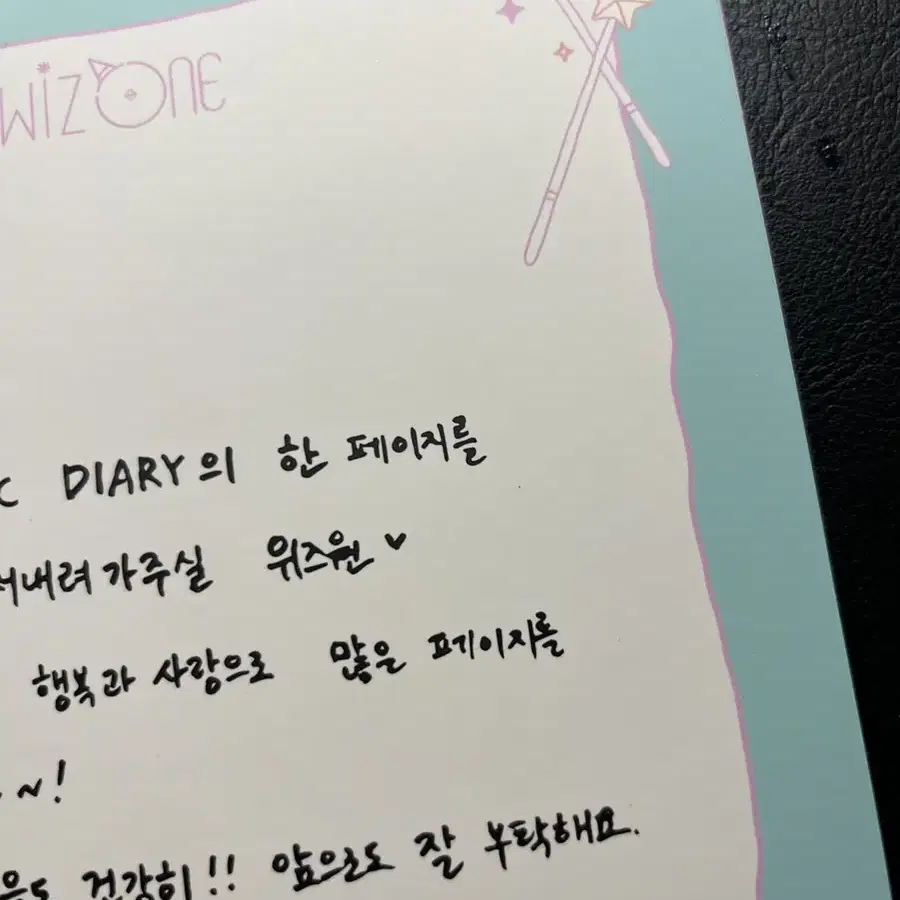 WIZONE
DIARY의 한 페이지를
내려가주실 위즈원♥
행복과 사랑으로 많은 페이지를
~!
건강히!! 앞으로도 잘 부탁해요.